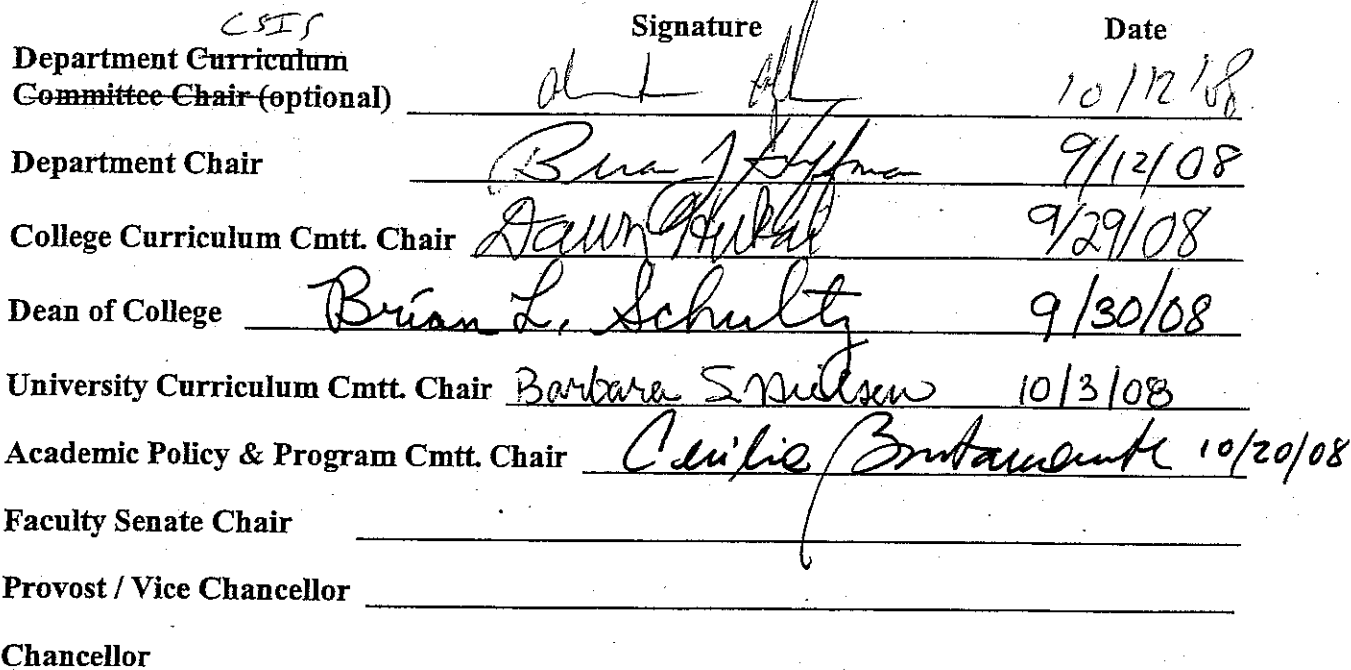 CSIS Signature Date
Department Curriculum
Committee Chair (optional) 10/12/08
Department Chair Brian J Hoffman 9/12/08
College Curriculum Cmtt. Chair Dawn 9/29/08
Dean of College Brian L. Schultz 9/30/08
University Curriculum Cmtt. Chair Barbara S Nielsen 10/3/08
Academic Policy & Program Cmtt. Chair Cecilia Bustamante 10/20/08
Faculty Senate Chair
Provost / Vice Chancellor
Chancellor